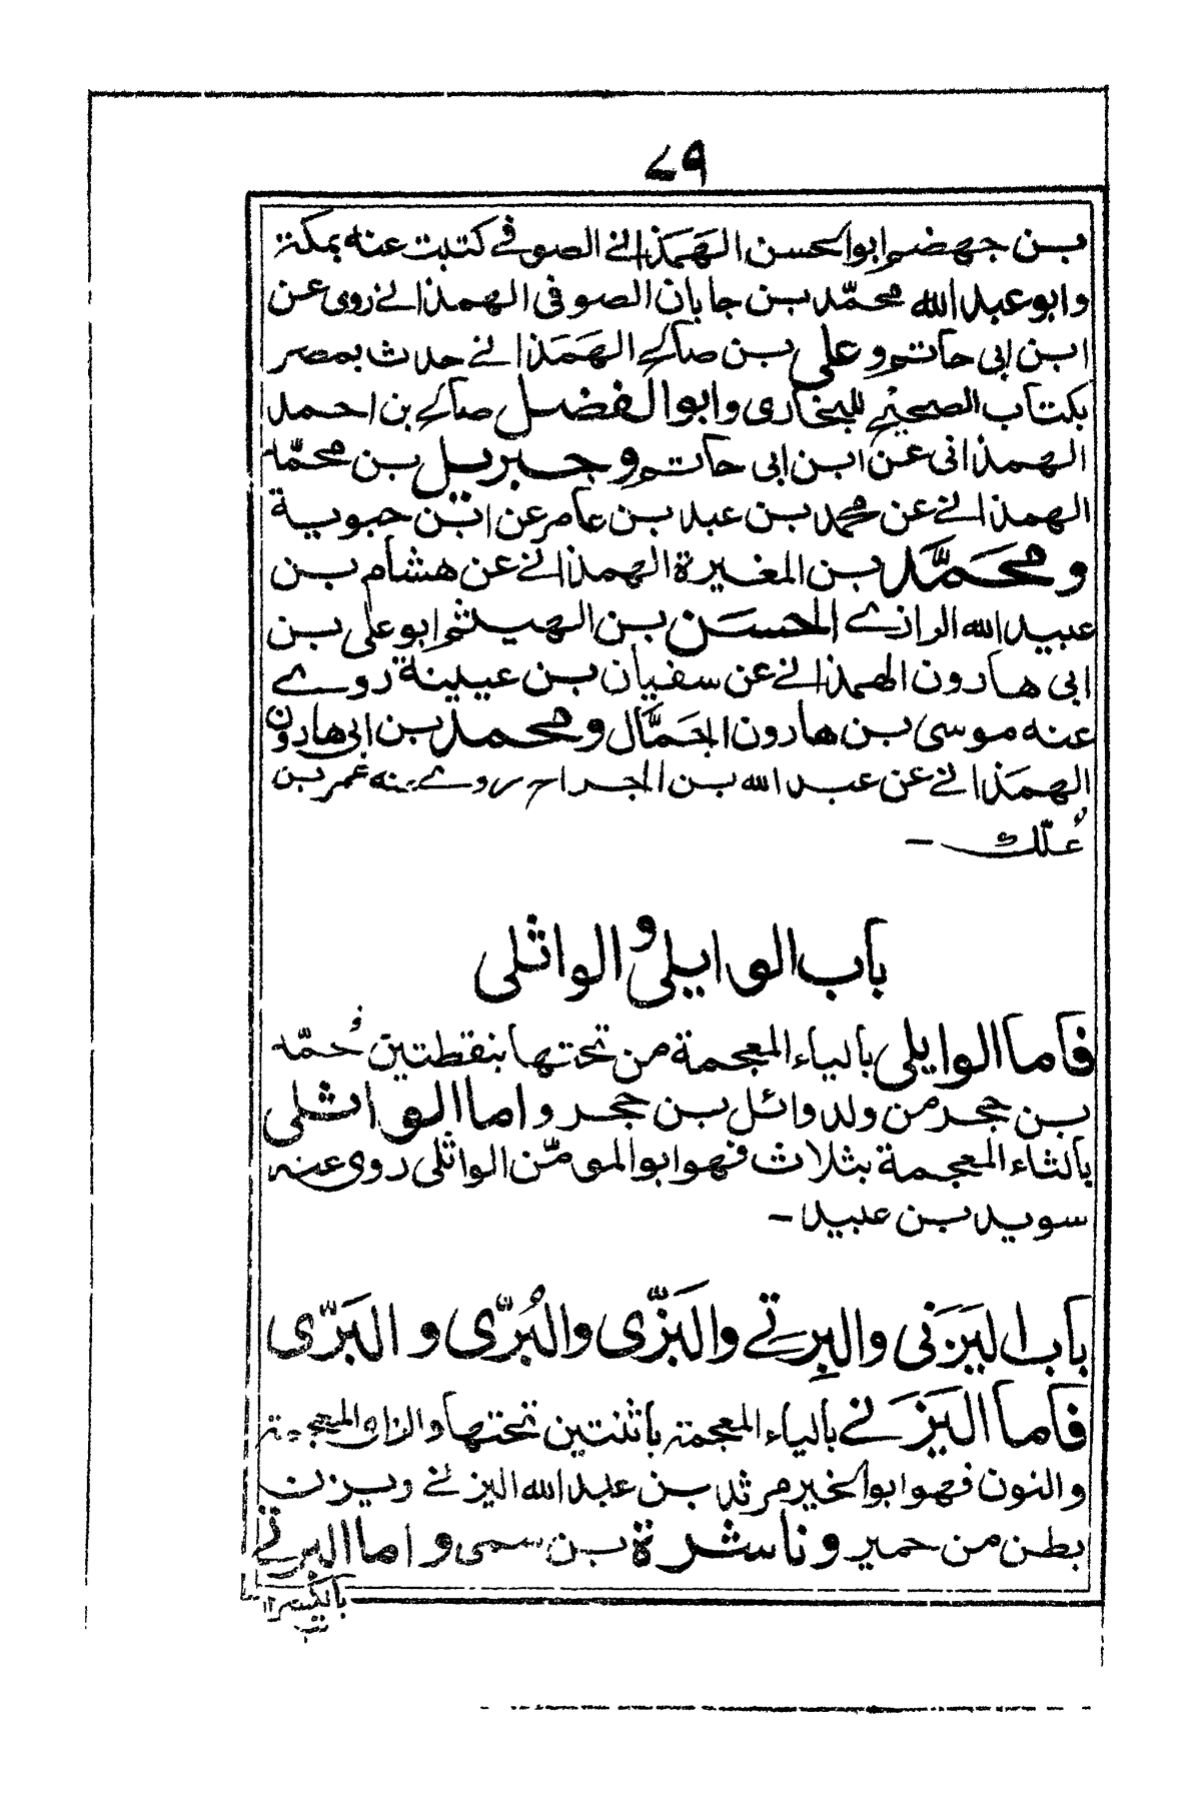 ٧٩
بن جهضم ابو الحسن الهَمَذاني الصوفي كتبت عنه بمكة
وابو عبد الله محمّد بن جابان الصوفى الهمذاني روى عن
ابن ابى حاتم وعلى بن صالح الهَمَذاني حدث بمصر
بكتاب الصحيح للبخارى وابو الفضل صالح بن احمد
الهمذانى عن ابن ابى حاتم وجبريل بن محمّد
الهمذاني عن محمد بن عبد بن عامر عن ابن حبوية
ومحَمَّد بن المغيرة الهمذاني عن هشام بن
عبيد الله الرازي الحسَن بن الهيثم ابو على بن
ابى هارون الهمذاني عن سفيان بن عيينة روى
عنه موسى بن هارون الجَمَّال ومحمد بن ابى هارون
الهمَذاني عن عبد الله بن الجراح روى عنه عمر بن
عُلّك -
باب الوايلى والواثلى
فاما الوايلى بالياء المعجمة من تحتها بنقطتين فمُحمّد
بن حجر من ولد وائل بن حجر واما الواثلى
بالثاء المعجمة بثلاث فهو ابو المومّن الواثلى روى عنه
سويد بن عبيد -
باب اليَزَنى والبِرتي والبَزّى والبُرّى والبَرّى
فاما اليَزَني بالياء المعجمة باثنتين تحتها والزاى المعجمة
والنون فهو ابو الخير مرثد بن عبد الله اليزني ويزن
بطن من حمير وناشرة بن سمى واما البرتي
بالكسر١٢